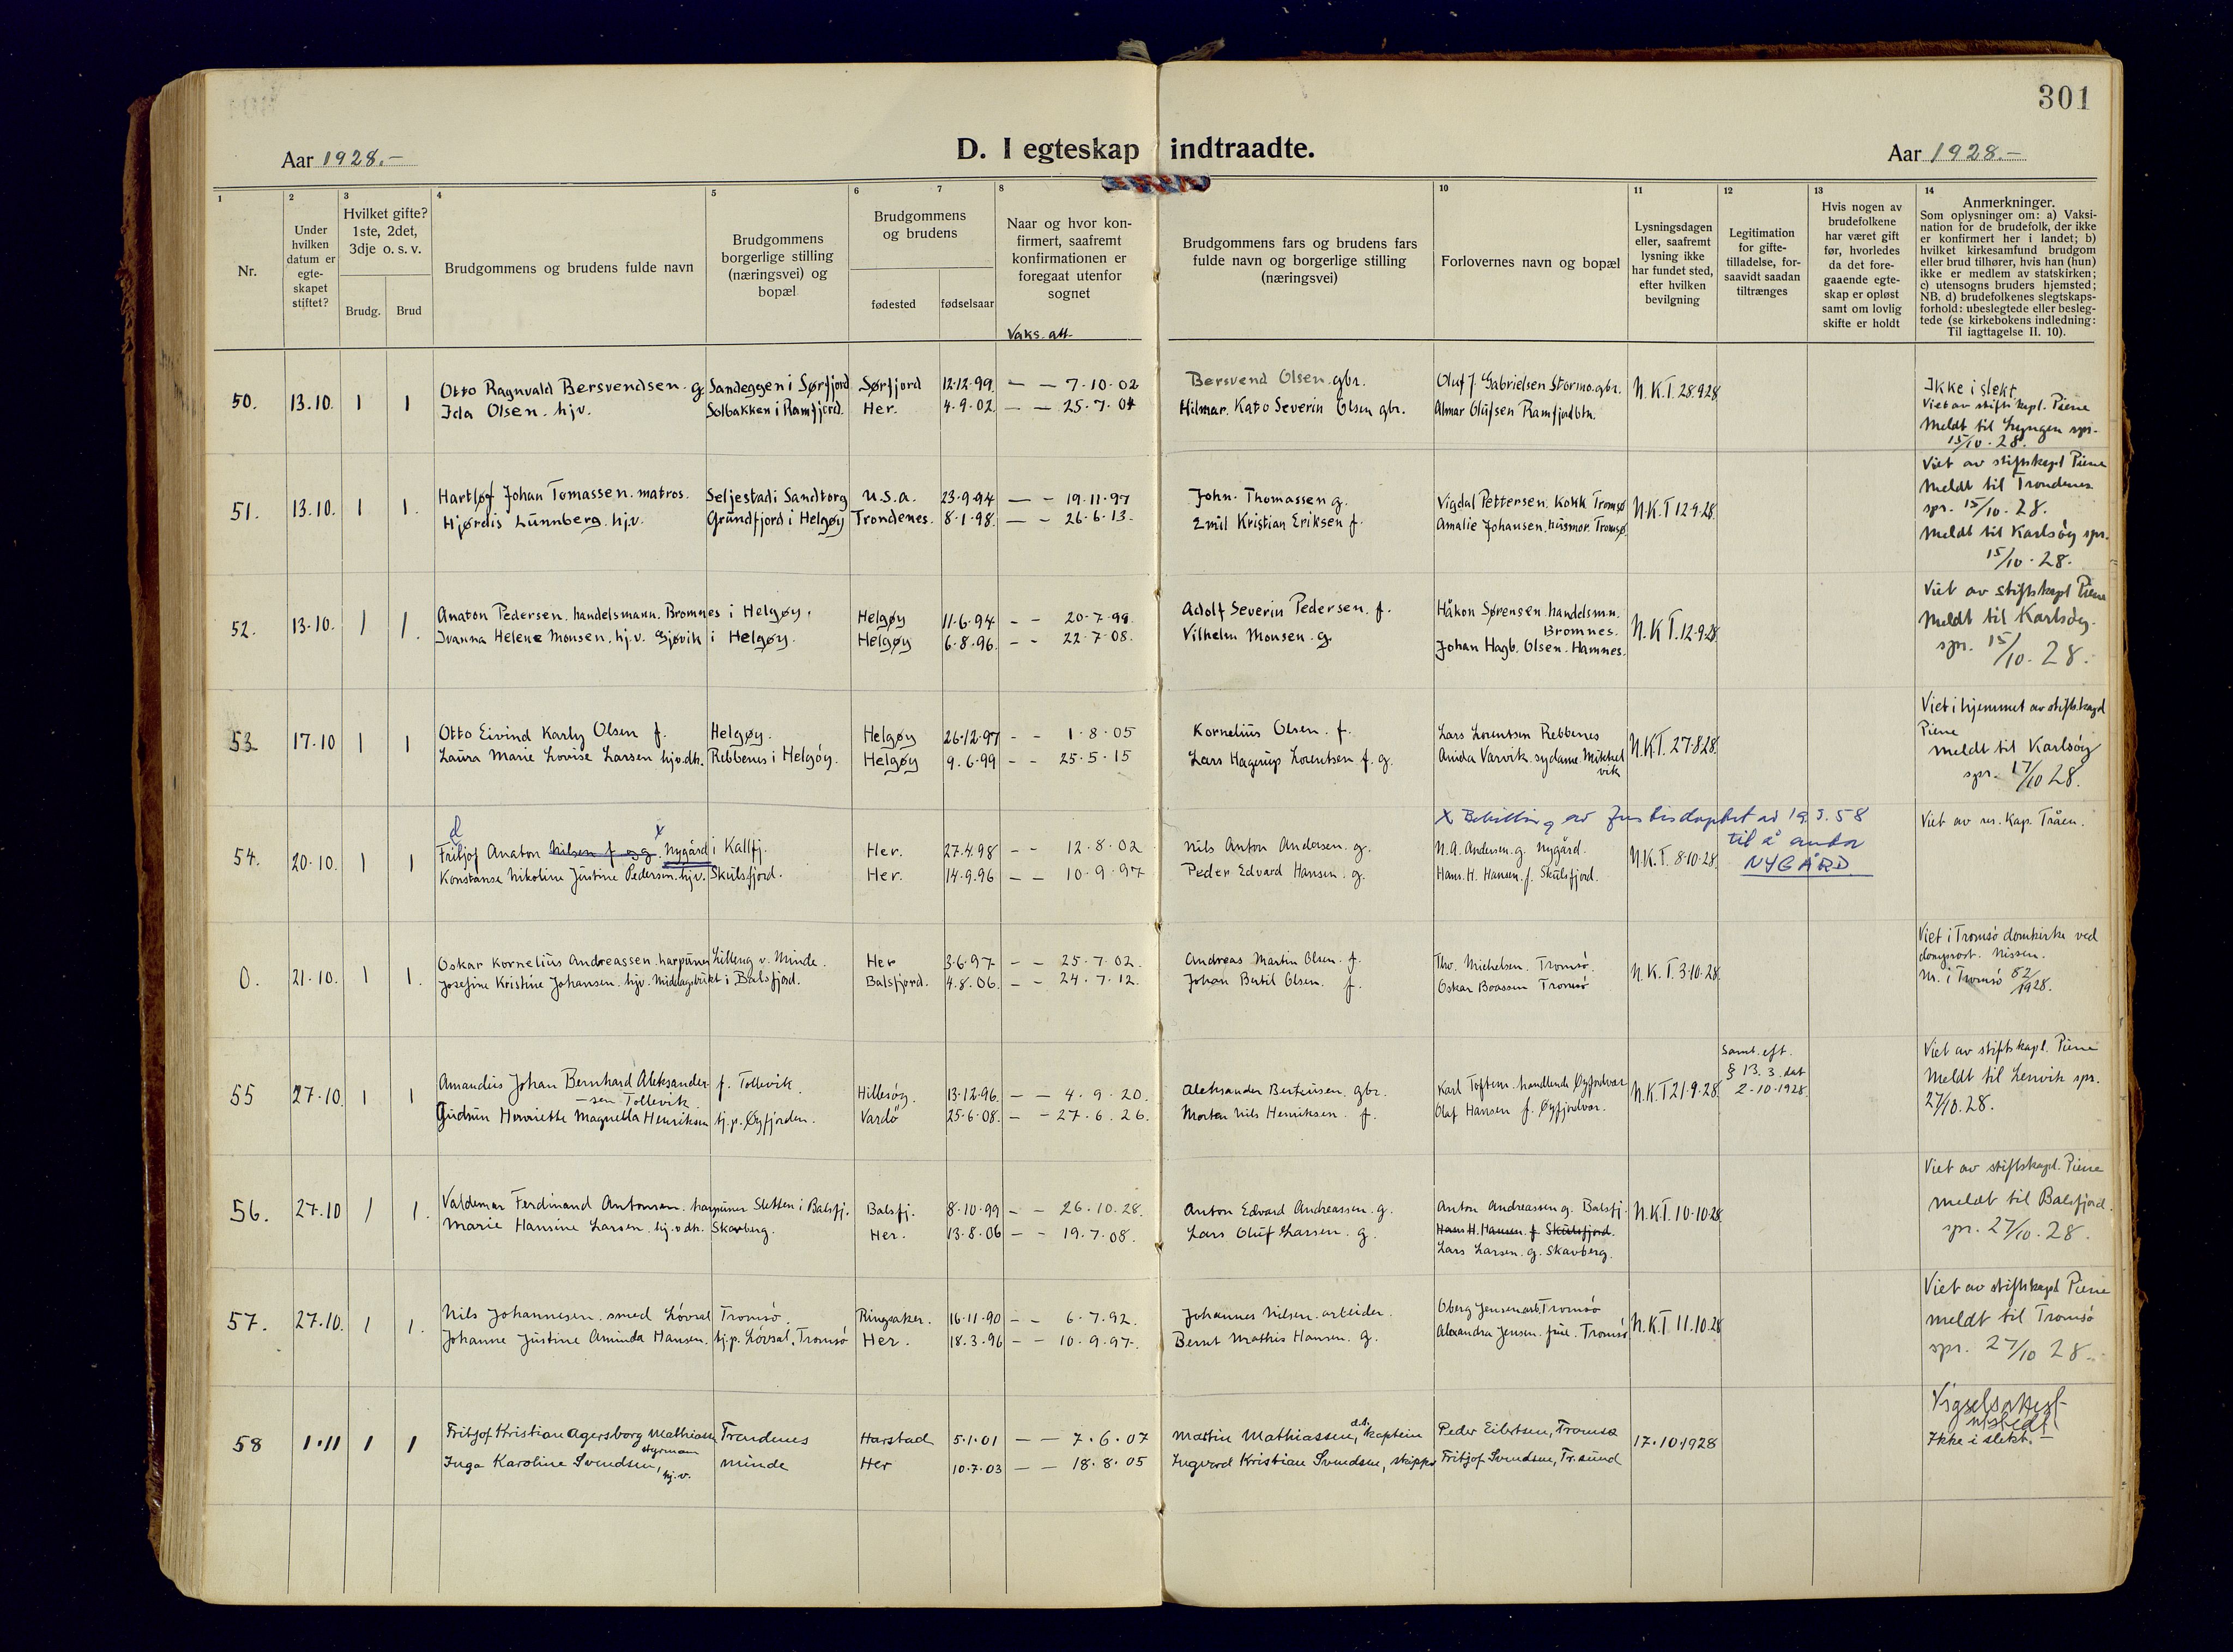 301
Aar 1928.-
D. I egteskap indtraadte.
Aar 1928.-
1 2 3 4 5 6 7 8 10 11 12 13 14
Nr.
Under hvilken datum er egte-skapet stiftet?
Hvilket gifte? 1ste, 2det, 3dje o. s. v.
Brudg. Brud
Brudgommens og brudens fulde navn
Brudgommens borgerlige stilling (næringsvei) og bopæl
Brudgommens og brudens
fødested fødselsaar
Naar og hvor kon-firmert, saafremt konfirmationen er foregaat utenfor sognet
Vaks. att.
Brudgommens fars og brudens fars fulde navn og borgerlige stilling (næringsvei)
Forlovernes navn og bopæl
Lysningsdagen eller, saafremt lysning ikke har fundet sted, efter hvilken bevilgning
Legitimation for gifte-tilladelse, for-saavidt saadan tiltrænges
Hvis nogen av brudefolkene har været gift før, hvorledes da det fore-gaaende egte-skap er opløst samt om lovlig skifte er holdt
Anmerkninger.
Som oplysninger om: a) Vaksi-nation for de brudefolk, der ikke er konfirmert her i landet; b) hvilket kirkesamfund brudgom eller brud tilhører, hvis han (hun) ikke er medlem av statskirken; c) utensogns bruders hjemsted; NB. d) brudefolkenes slegtskaps-forhold: ubeslegtede eller besleg-tede (se kirkebokens indledning: Til iagttagelse II. 10).
50. 13.10. 1 1
Otto Ragnvald Bersvendsen. g. Sandeggen i Sørfjord Sørfjord 12.12.99. — — 7.10.02 Bersvend Olsen. gbr. Oluf J. Gabrielsen Stormo. gbr. N.K.T. 28.9.28
Ida Olsen. hjv. Solbakken i Ramfjord. Her. 4.9.02. — — 25.7.04 Hilmar. Kato Severin Olsen gbr. Almar Olufsen Ramfjordbtn.
Ikke i slekt.
Viet av stiftskapl. Piene
Meldt til Lyngen spr.
15/10.28.
51. 13.10. 1 1.
Hartløf Johan Tomassen. matros. Seljestad i Sandtorg U.S.a. 23.9.94 — — 19.11.97 John. Thomassen g. Vigdal Pettersen. Kokk Tromsø N.K.T 12.9.28.
Hjørdis Lunnberg. hj.v. Grundfjord i Helgøy Trondenes. 8.1.98. — — 26.6.13. Emil Kristian Eriksen f. Amalie Johansen. husmor. Tromsø.
Viet av stiftskapl Piene
Meldt til Trondenes
spr. 15/10.28.
Meldt til Karlsøy spr.
15/10.28.
52. 13.10. 1 1.
Anaton Pedersen. handelsmann. Bromnes i Helgøy. Helgøy 11.6.94 — — 20.7.99. Adolf Severin Pedersen. f. Håkon Sørensen handelsmn. Bromnes. N.K.T. 12.9.28.
Ivanna Helene Monsen. hj.v. Gjøvik i Helgøy. Helgøy 6.8.96. — — 22.7.08. Vilhelm Monsen. g. Johan Hagb. Olsen. Hamnes.
Viet av stiftskapl Piene
Meldt til Karlsøy.
spr. 15/10.28.
53 17.10 1 1
Otto Eivind Karly Olsen f. Helgøy. Helgøy 26.12.97 — — 1.8.05 Kornelius Olsen. f. Lars Lorentsen Rebbenes N.K.T. 27.8.28.
Laura Marie Lovise Larsen hjv.dtr. Rebbenes i Helgøy. Helgøy 9.6.99 — — 25.5.15 Lars Hagerup Lorentsen f. g. Anida Varvik. sydame. Mikkelvik
Viet i hjemmet av stifts.kapl
Piene
Meldt til Karlsøy
spr. 17/10 28.
x Bevilling av Justisdeptet av 19.3.58
til å anta
NYGÅRD
54. 20.10. 1 1
d x
Fritjof Anaton Nilsen f og g. Nygård i Kallfj. Her. 27.4.98 — — 12.8.02 Nils Anton Andersen. g. N.A. Andersen. g. Nygård. N.K.T. 8.10.28.
Konstanse Nikoline Justine Pedersen. hj.v. Skulsfjord. Her. 14.9.96 — — 10.9.97 Peder Edvard Hansen. g. Hans. H. Hansen. f. Skulsfjord.
Viet av res. Kap. Tråen.
0. 21.10. 1 1.
Oskar Kornelius Andreassen. harpuner Lilleng v. Minde. Her 3.6.97 — — 25.7.02. Andreas Martin Olsen. f. Thv. Michelsen. Tromsø. N.K.T. 3.10.28.
Josefine Kristine Johansen. hjv. Middagsbukt i Balsfjord. Balsfjord. 4.8.06. — — 24.7.12. Johan Bertil Olsen. f. Oskar Boassen Tromsø
Viet i Tromsø domkirke ved
domprost. Nissen.
Nr. i Tromsø 82/1928.
55 27.10. 1 1
Amandus Johan Bernhard Aleksandersen Tollevik. f. Tollevik. Hillesøy. 13.12.96. — — 4.9.20. Aleksander Bertensen. gbr. Karl Toftem. handlende Øyfjordvar N.K.T 21.9.28. Saml. eft. § 13. 3. dat 2.10.1928
Gudrun Henriette Magnella Henriksen tj.p. Øyfjorden. Vardø 25.6.08. — — 27.6.26. Morten Nils Henriksen. f. Olaf Hansen f. Øyfjordvar.
Viet av stiftskapl. Piene
Meldt til Lenvik spr.
27/10.28.
56. 27.10 1 1.
Valdemar Ferdinand Antonsen. harpuner Sletten i Balsfj. Balsfj. 8.10.99 — — 26.10.28. Anton Edvard Andreassen. g. Anton Andreassen g. Balsfj. N.K.T. 10.10.28
Marie Hansine Larsen. hj.v.dtr. Skavberg. Her. 13.8.06 — — 19.7.08. Lars Oluf Larsen. g. Hans H. Hansen. f. Skulsfjord.
Lars Larsen. g. Skavberg.
Viet av stiftskapl. Piene
Meldt til Balsfjord.
spr. 27/10.28.
57. 27.10. 1 1.
Nils Johannesen. smed Lövsal Tromsø. Ringsaker. 16.11.90 — — 6.7.92. Johannes Nilsen. arbeider. Oberg Jensen arb. Tromsø N.K.T 11.10.28
Johanne Justine Aminda Hansen. tj.p. Lövsal. Tromsø Her. 18.3.96 — — 10.9.97. Bernt Mathis Hansen. g. Alexandra Jensen. frue. Tromsø
Viet av stiftskapl Piene
Meldt til Tromsø
spr. 27/10 28.
58 1.11 1 1
Fritjof Kristian Agersborg Mathiassen styrmann Trondenes Harstad 5.1.01 — — 7.6.07 Martin Mathiassen, d.s. kaptein Peder Eilertsen, Tromsø 17.10.1928
Inga Karoline Svendsen, hj.v. Minde Her 10.7.03 — — 18.8.05 Ingvard Kristian Svendsen, skipper Fritjof Svendsen, Tr.sund
Vigselsattest
utstedt
Ikke i slekt. —